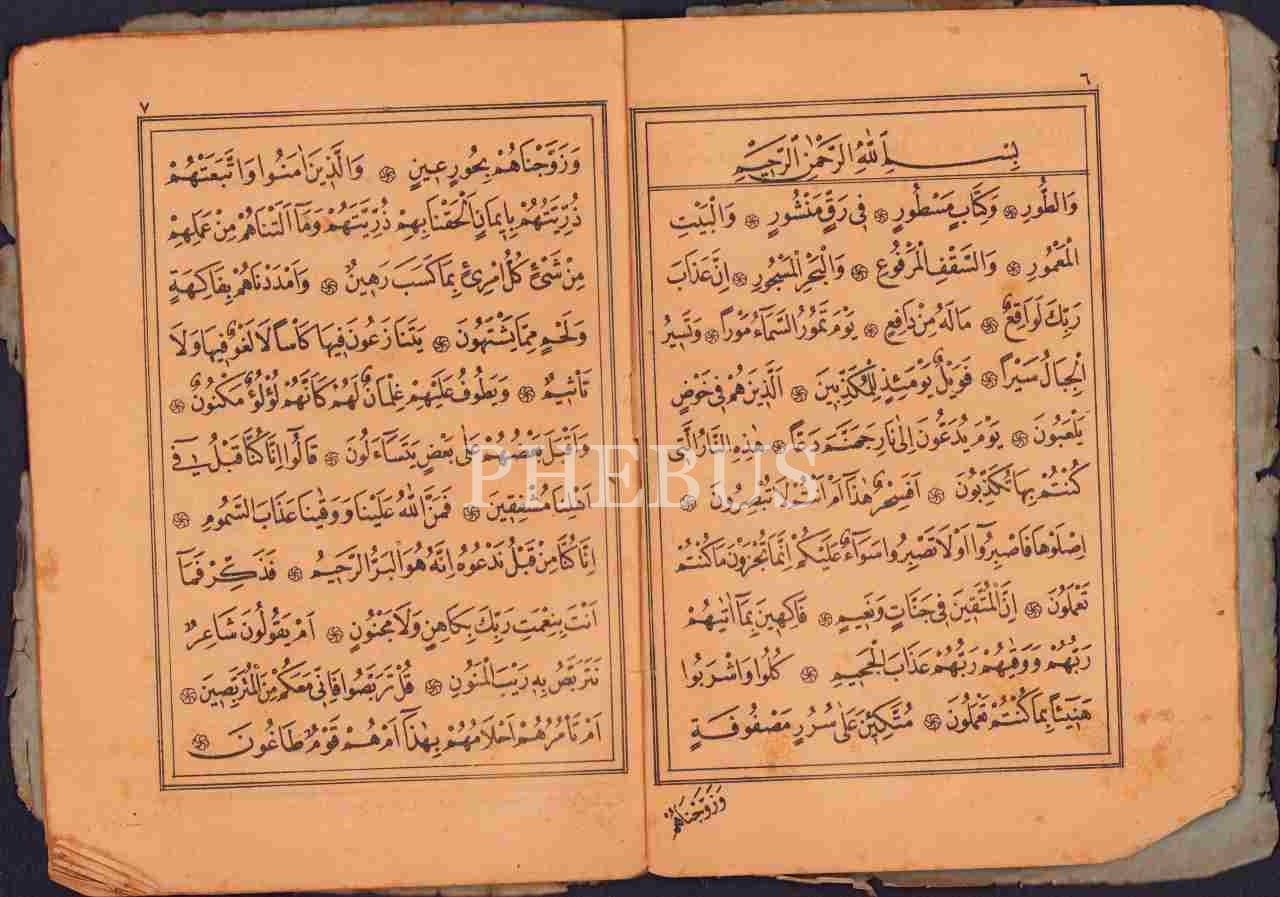 ٦
بِسْمِ اللهِ الرَّحْمٰنِ الرَّحِيمِ
وَالطُّورِ ۞ وَكِتَابٍ مَسْطُورٍ ۞ فِى رَقٍّ مَنْشُورٍ ۞ وَالْبَيْتِ
الْمَعْمُورِ ۞ وَالسَّقْفِ الْمَرْفُوعِ ۞ وَالْبَحْرِ الْمَسْجُورِ ۞ اِنَّ عَذَابَ
رَبِّكَ لَوَاقِعٌ ۞ مَالَهُ مِنْ دَافِعٍ ۞ يَوْمَ تَمُورُ السَّمَاءُ مَوْراً ۞ وَتَسِيرُ
الْجِبَالُ سَيْراً ۞ فَوَيْلٌ يَوْمَئِذٍ لِلْمُكَذِّبِينَ ۞ اَلَّذِينَ هُمْ فِى خَوْضٍ
يَلْعَبُونَ ۞ يَوْمَ يُدَعُّونَ اِلٰى نَارِ جَهَنَّمَ دَعًّا ۞ هٰذِهِ النَّارُ الَّتِى
كُنْتُمْ بِهَا تُكَذِّبُونَ ۞ اَفَسِحْرٌ هٰذَا اَمْ اَنْتُمْ لَا تُبْصِرُونَ ۞
اِصْلَوْهَا فَاصْبِرُوا اَوْ لَا تَصْبِرُوا سَوَاءٌ عَلَيْكُمْ اِنَّمَا تُجْزَوْنَ مَا كُنْتُمْ
تَعْمَلُونَ ۞ اِنَّ الْمُتَّقِينَ فِى جَنَّاتٍ وَنَعِيمٍ ۞ فَاكِهِينَ بِمَا اٰتٰيهُمْ
رَبُّهُمْ وَوَقٰيهُمْ رَبُّهُمْ عَذَابَ الْجَحِيمِ ۞ كُلُوا وَاشْرَبُوا
هَنِيئاً بِمَا كُنْتُمْ تَعْمَلُونَ ۞ مُتَّكِئِينَ عَلٰى سُرُرٍ مَصْفُوفَةٍ
وَزَوَّجْنَاهُمْ
٧
وَزَوَّجْنَاهُمْ بِحُورٍ عِينٍ ۞ وَالَّذِينَ اٰمَنُوا وَاتَّبَعَتْهُمْ
ذُرِّيَّتُهُمْ بِاِيمَانٍ اَلْحَقْنَا بِهِمْ ذُرِّيَّتَهُمْ وَمَا اَلَتْنَاهُمْ مِنْ عَمَلِهِمْ
مِنْ شَىْءٍ كُلُّ امْرِئٍ بِمَا كَسَبَ رَهِينٌ ۞ وَاَمْدَدْنَاهُمْ بِفَاكِهَةٍ
وَلَحْمٍ مِمَّا يَشْتَهُونَ ۞ يَتَنَازَعُونَ فِيهَا كَاْساً لَا لَغْوٌ فِيهَا وَلَا
تَاْثِيمٌ ۞ وَيَطُوفُ عَلَيْهِمْ غِلْمَانٌ لَهُمْ كَاَنَّهُمْ لُؤْلُؤٌ مَكْنُونٌ ۞
وَاَقْبَلَ بَعْضُهُمْ عَلٰى بَعْضٍ يَتَسَاءَلُونَ ۞ قَالُوا اِنَّا كُنَّا قَبْلُ فِى
اَهْلِنَا مُشْفِقِينَ ۞ فَمَنَّ اللهُ عَلَيْنَا وَوَقٰينَا عَذَابَ السَّمُومِ ۞
اِنَّا كُنَّا مِنْ قَبْلُ نَدْعُوهُ اِنَّهُ هُوَ الْبَرُّ الرَّحِيمُ ۞ فَذَكِّرْ فَمَا
اَنْتَ بِنِعْمَتِ رَبِّكَ بِكَاهِنٍ وَلَا مَجْنُونٍ ۞ اَمْ يَقُولُونَ شَاعِرٌ
نَتَرَبَّصُ بِهِ رَيْبَ الْمَنُونِ ۞ قُلْ تَرَبَّصُوا فَاِنِّى مَعَكُمْ مِنَ الْمُتَرَبِّصِينَ ۞
اَمْ تَاْمُرُهُمْ اَحْلَامُهُمْ بِهٰذَا اَمْ هُمْ قَوْمٌ طَاغُونَ ۞
PHEBUS